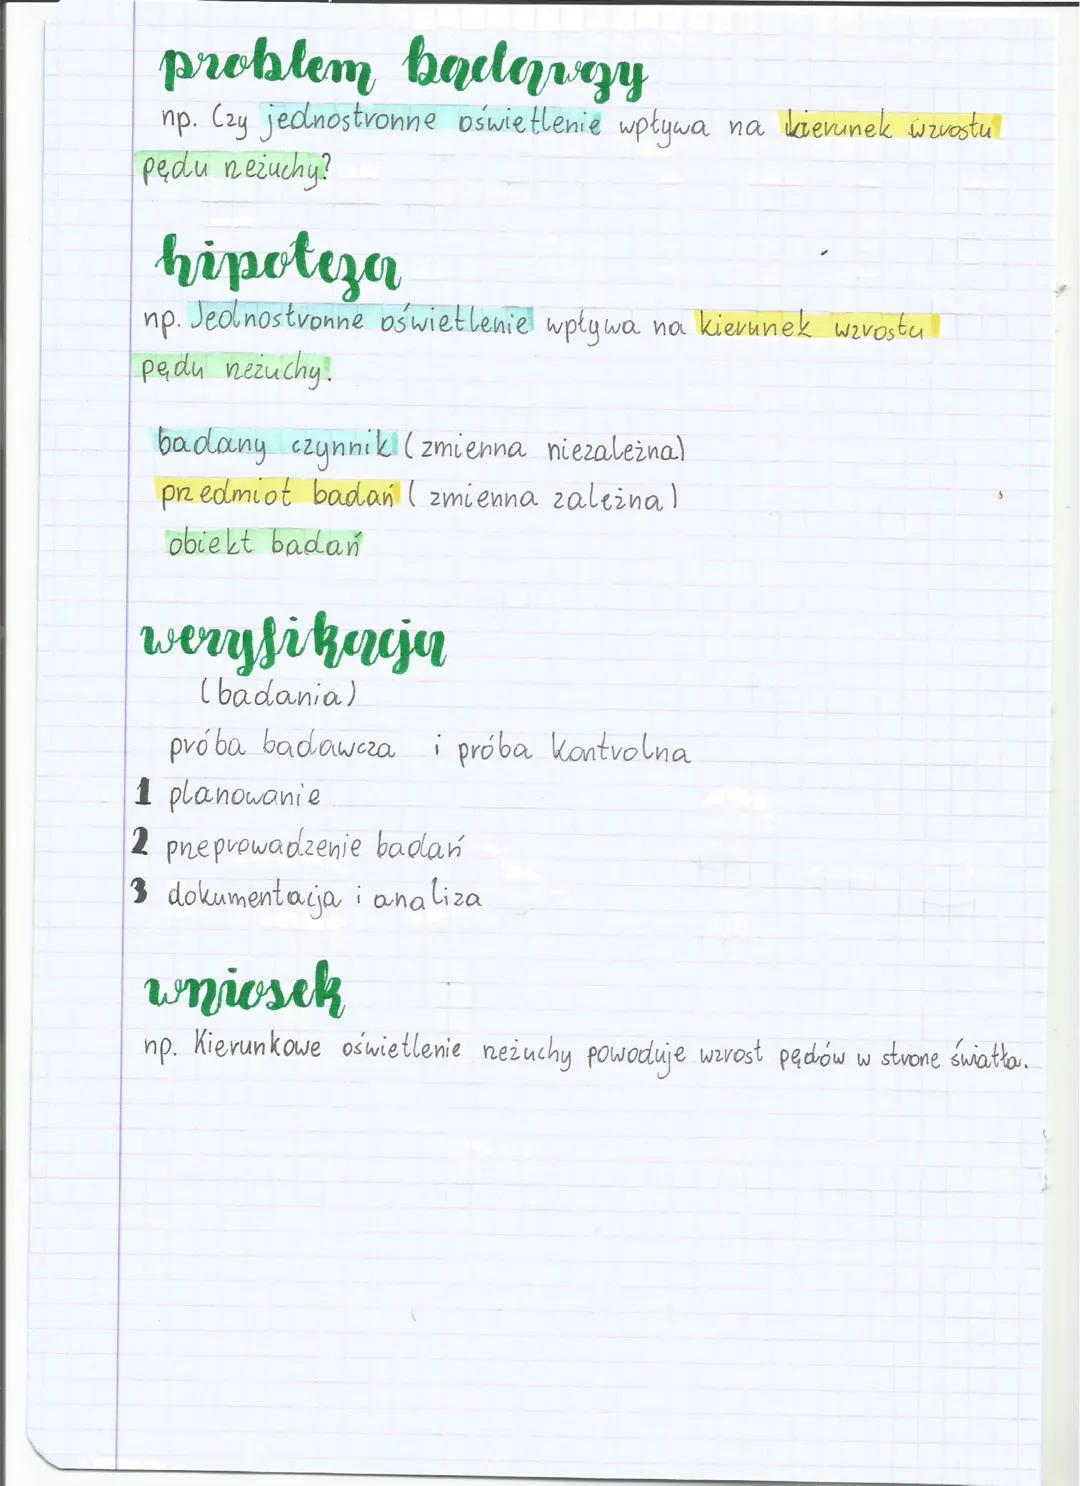 problem badawczy
np. Czy jednostronne oświetlenie wpływa na kierunek wzrostu
pędu rzeżuchy?
hipoteza
np. Jednostronne oświetlenie wpływa na kierunek wzrostu
pędu rzeżuchy.
badany czynnik (zmienna niezależna)
przedmiot badań (zmienna zależna)
obiekt badań
weryfikacja
(badania)
próba badawcza i próba kontrolna
1 planowanie
2 przeprowadzenie badań
3 dokumentacja i analiza
wniosek
np. Kierunkowe oświetlenie rzeżuchy powoduje wzrost pędów w strone światła.